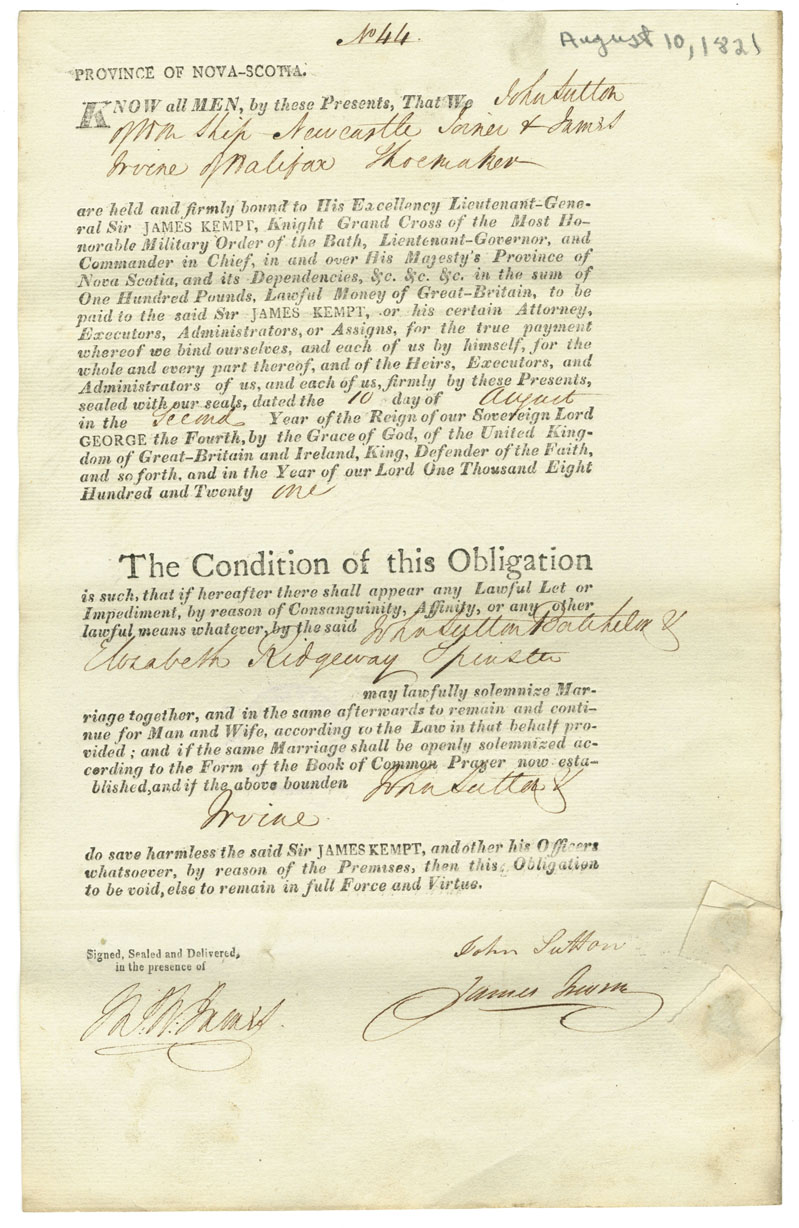 No 44.
August 10, 1821
PROVINCE OF NOVA-SCOTIA.
KNOW all MEN, by these Presents, That We John Sutton
of Ship Newcastle Joiner & James
Irvine of Halifax Shoemaker
are held and firmly bound to His Excellency Lieutenant-Gene-
ral Sir JAMES KEMPT, Knight Grand Cross of the Most Ho-
norable Military Order of the Bath, Lieutenant-Governor, and
Commander in Chief, in and over His Majesty's Province of
Nova Scotia, and its Dependencies, &c. &c. &c. in the sum of
One Hundred Pounds, Lawful Money of Great-Britain, to be
paid to the said Sir JAMES KEMPT, or his certain Attorney,
Executors, Administrators, or Assigns, for the true payment
whereof we bind ourselves, and each of us by himself, for the
whole and every part thereof, and of the Heirs, Executors, and
Administrators of us, and each of us, firmly by these Presents,
sealed with our seals, dated the 10 day of August
in the Second Year of the Reign of our Sovereign Lord
GEORGE the Fourth, by the Grace of God, of the United King-
dom of Great-Britain and Ireland, King, Defender of the Faith,
and so forth, and in the Year of our Lord One Thousand Eight
Hundred and Twenty one
The Condition of this Obligation
is such, that if hereafter there shall appear any Lawful Let or
Impediment, by reason of Consanguinity, Affinity, or any other
lawful means whatever, by the said John Sutton Batchelor &
Elizabeth Ridgeway Spinster
may lawfully solemnize Mar-
riage together, and in the same afterwards to remain and conti-
nue for Man and Wife, according to the Law in that behalf pro-
vided; and if the same Marriage shall be openly solemnized ac-
cording to the Form of the Book of Common Prayer now esta-
blished, and if the above bounden John Sutton &
Irvine
do save harmless the said Sir JAMES KEMPT, and other his Officers
whatsoever, by reason of the Premises, then this Obligation
to be void, else to remain in full Force and Virtue.
Signed, Sealed and Delivered,
in the presence of
John Sutton
James
James